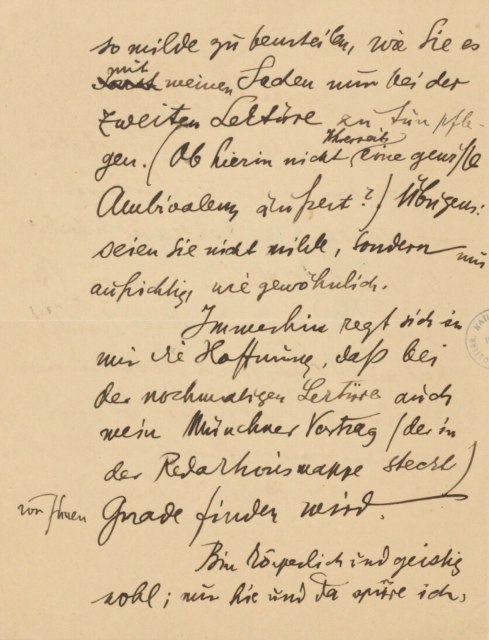 so milde zu beurteilen, wie Sie es
mit meinen Saden nun bei der
zweiten Lektüre zu tun pfle-
gen. (Ob hierin nicht Ihrerseits eine gewisse
Ambivalenz äußert?) Übrigens:
seien Sie nicht milde, sondern nur
aufrichtig, wie gewöhnlich.
Immerhin regt sich in
mir die Hoffnung, daß bei
der nochmaligen Lektüre auch
mein Münchner Vortrag (der in
der Redaktionsmappe steckt)
von Ihnen Gnade finden wird.
Bin körperlich und geistig
wohl; nur hie und da spüre ich,